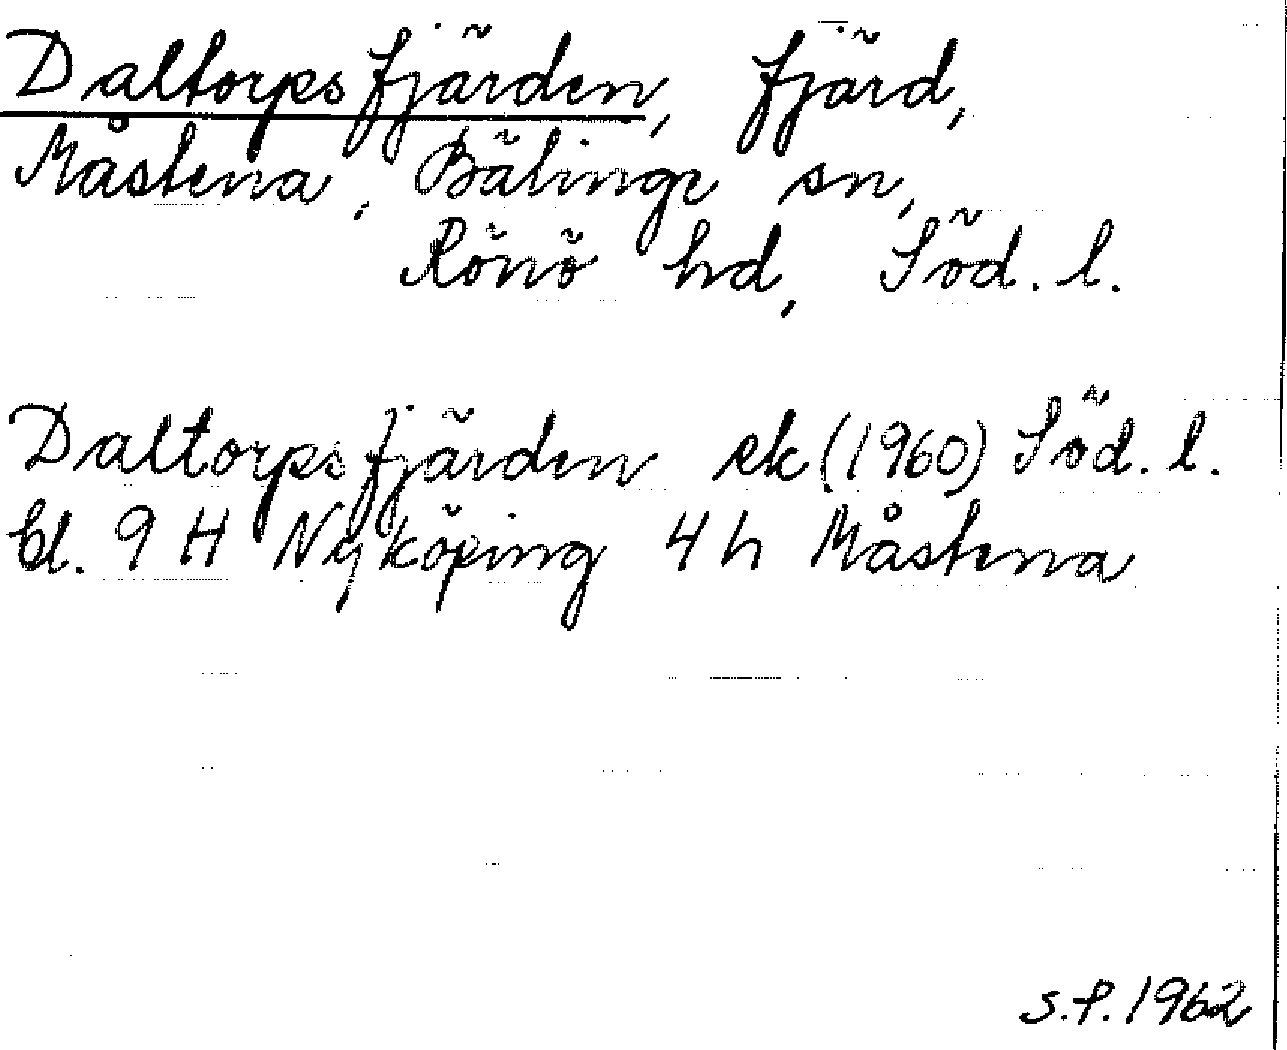 Daltorpsfjärden, fjärd,
Måstena, Bälinge sn,
Rönö hd, Söd. l.
Daltorpsfjärden ek (1960) Söd. l.
bl. 9 H Nyköping 4 h Måstena
S.P. 1962